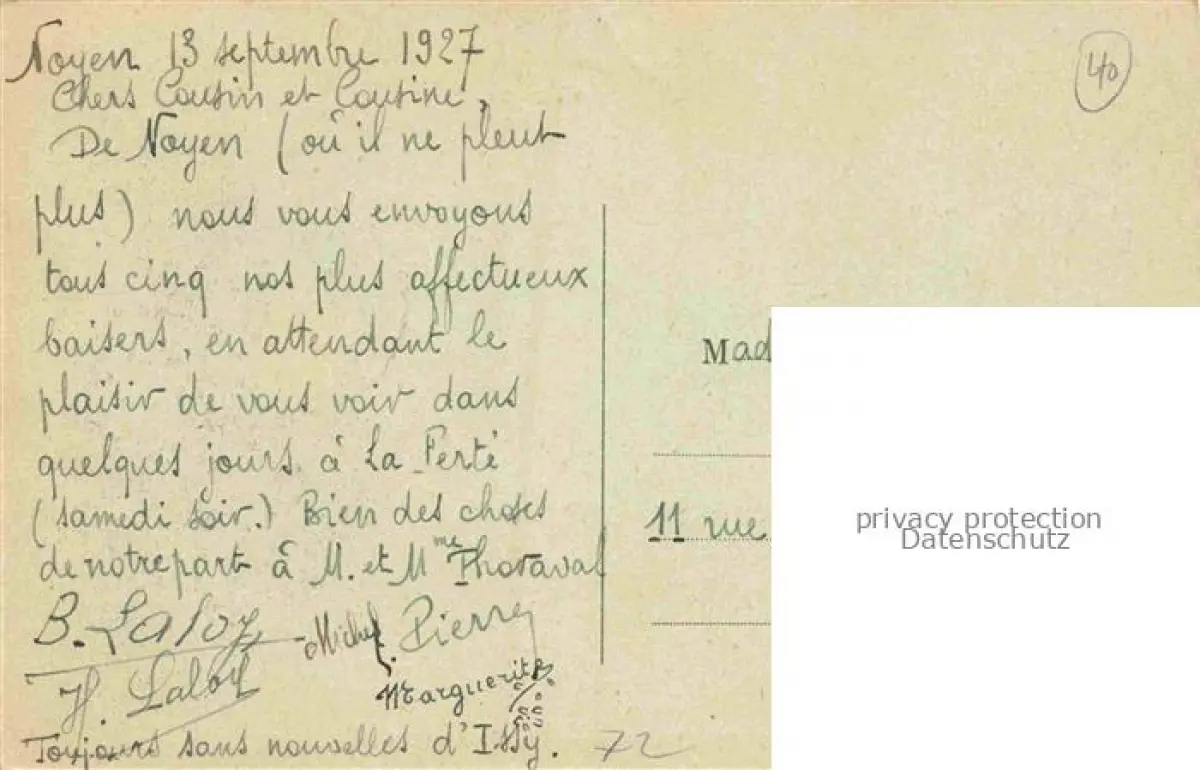 Noyen 13 septembre 1927
Chers Cousin et Cousine,
De Noyen (où il ne pleut
plus) nous vous envoyons
tous cinq nos plus affectueux
baisers, en attendant le
plaisir de vous voir dans
quelques jours à La Ferté
(samedi soir.) Bien des choses
de notre part à M. et Mme Thoraval
B. Laloy Michel. Pierre
H. Laloy Marguerite
Toujours sans nouvelles d'Issy. 72
40
Mad
11 rue
privacy protection
Datenschutz